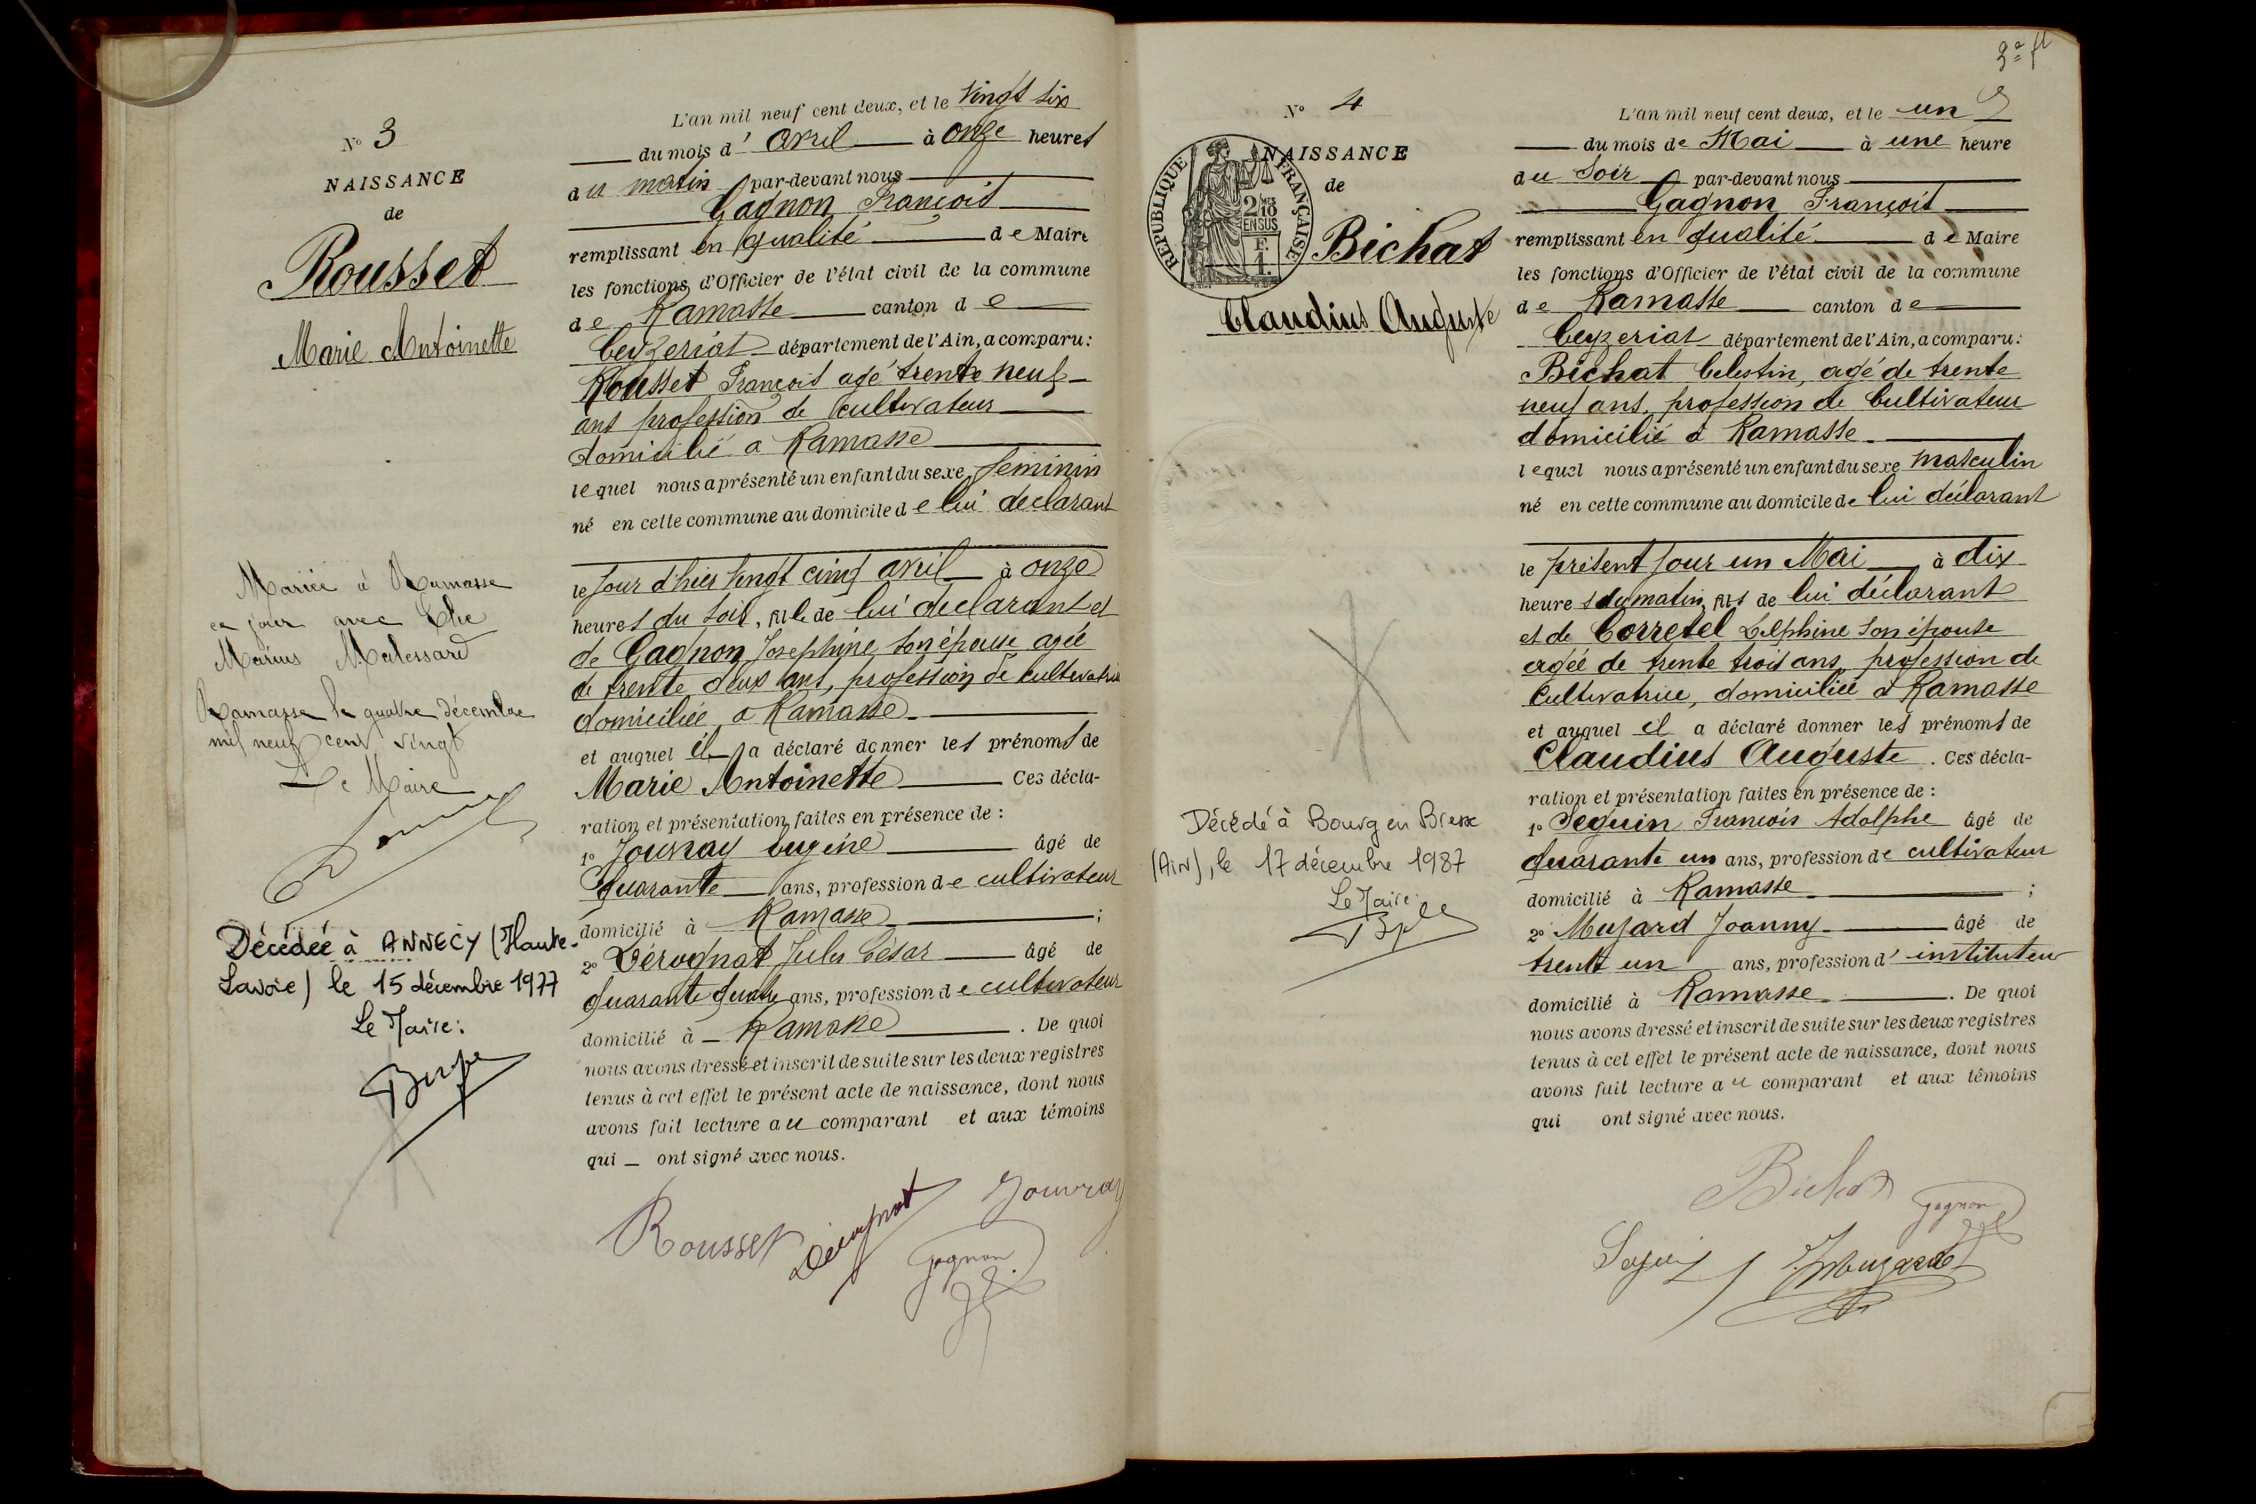 N° 3
NAISSANCE
de
Rousset
Marie Antoinette
Mariée à Ramasse
ce jour avec Elie
Marius Malessard
Ramasse le quatre décembre
mil neuf cent vingt
Le Maire
Décédée à ANNECY (Haute-
Savoie) le 15 décembre 1977
Le Maire:
L'an mil neuf cent deux, et le vingt six
du mois d'avril à onze heures
du matin par-devant nous
Gagnon François
remplissant en qualité de Maire
les fonctions d'Officier de l'état civil de la commune
de Ramasse canton de
Ceyzeriat département de l'Ain, a comparu:
Rousset François agé trente neuf
ans profession de Cultivateur
domicilié a Ramasse
lequel nous a présenté un enfant du sexe feminin
né en cette commune au domicile de lui declarant
le jour d'hier vingt cinq avril à onze
heures du soir, fille de lui declarant et
de Gagnon Josephine son épouse agée
de trente deux ans, profession de cultivatrice
domiciliée a Ramasse
et auquel il a déclaré donner les prénoms de
Marie Antoinette Ces décla-
ration et présentation faites en présence de :
1° Jouvray Eugéne âgé de
quarante ans, profession de cultivateur
domicilié à Ramasse ;
2° Dérognat Jules César âgé de
quarante quatre ans, profession de cultivateur
domicilié à Ramasse . De quoi
nous avons dressé et inscrit de suite sur les deux registres
tenus à cet effet le présent acte de naissance, dont nous
avons fait lecture au comparant et aux témoins
qui ont signé avec nous.
Rousset Dérognat Jouvray
Gagnon
N° 4
NAISSANCE
de
REPUBLIQUE FRANÇAISE
2/10
EN SUS
F.
1.
Bichat
Claudius Auguste
Décédé à Bourg en Bresse
(Ain), le 17 décembre 1987
Le Maire
L'an mil neuf cent deux, et le un
du mois de Mai à une heure
du soir par-devant nous
Gagnon François
remplissant en qualité de Maire
les fonctions d'Officier de l'état civil de la commune
de Ramasse canton de
Ceyzeriat département de l'Ain, a comparu:
Bichat Celestin, agé de trente
neuf ans, profession de Cultivateur
domicilié à Ramasse
lequel nous a présenté un enfant du sexe masculin
né en cette commune au domicile de lui déclarant
le présent jour un Mai à dix
heures du matin, fils de lui déclarant
et de Corretel Delphine son épouse
agée de trente trois ans, profession de
Cultivatrice, domiciliée à Ramasse
et auquel il a déclaré donner les prénoms de
Claudius Auguste . Ces décla-
ration et présentation faites en présence de :
1° Seguin François Adolphe âgé de
quarante un ans, profession de cultivateur
domicilié à Ramasse ;
2° Musard Joanny âgé de
trente un ans, profession d'instituteur
domicilié à Ramasse . De quoi
nous avons dressé et inscrit de suite sur les deux registres
tenus à cet effet le présent acte de naissance, dont nous
avons fait lecture au comparant et aux témoins
qui ont signé avec nous.
Bichat
Gagnon
Seguin J. Muzard